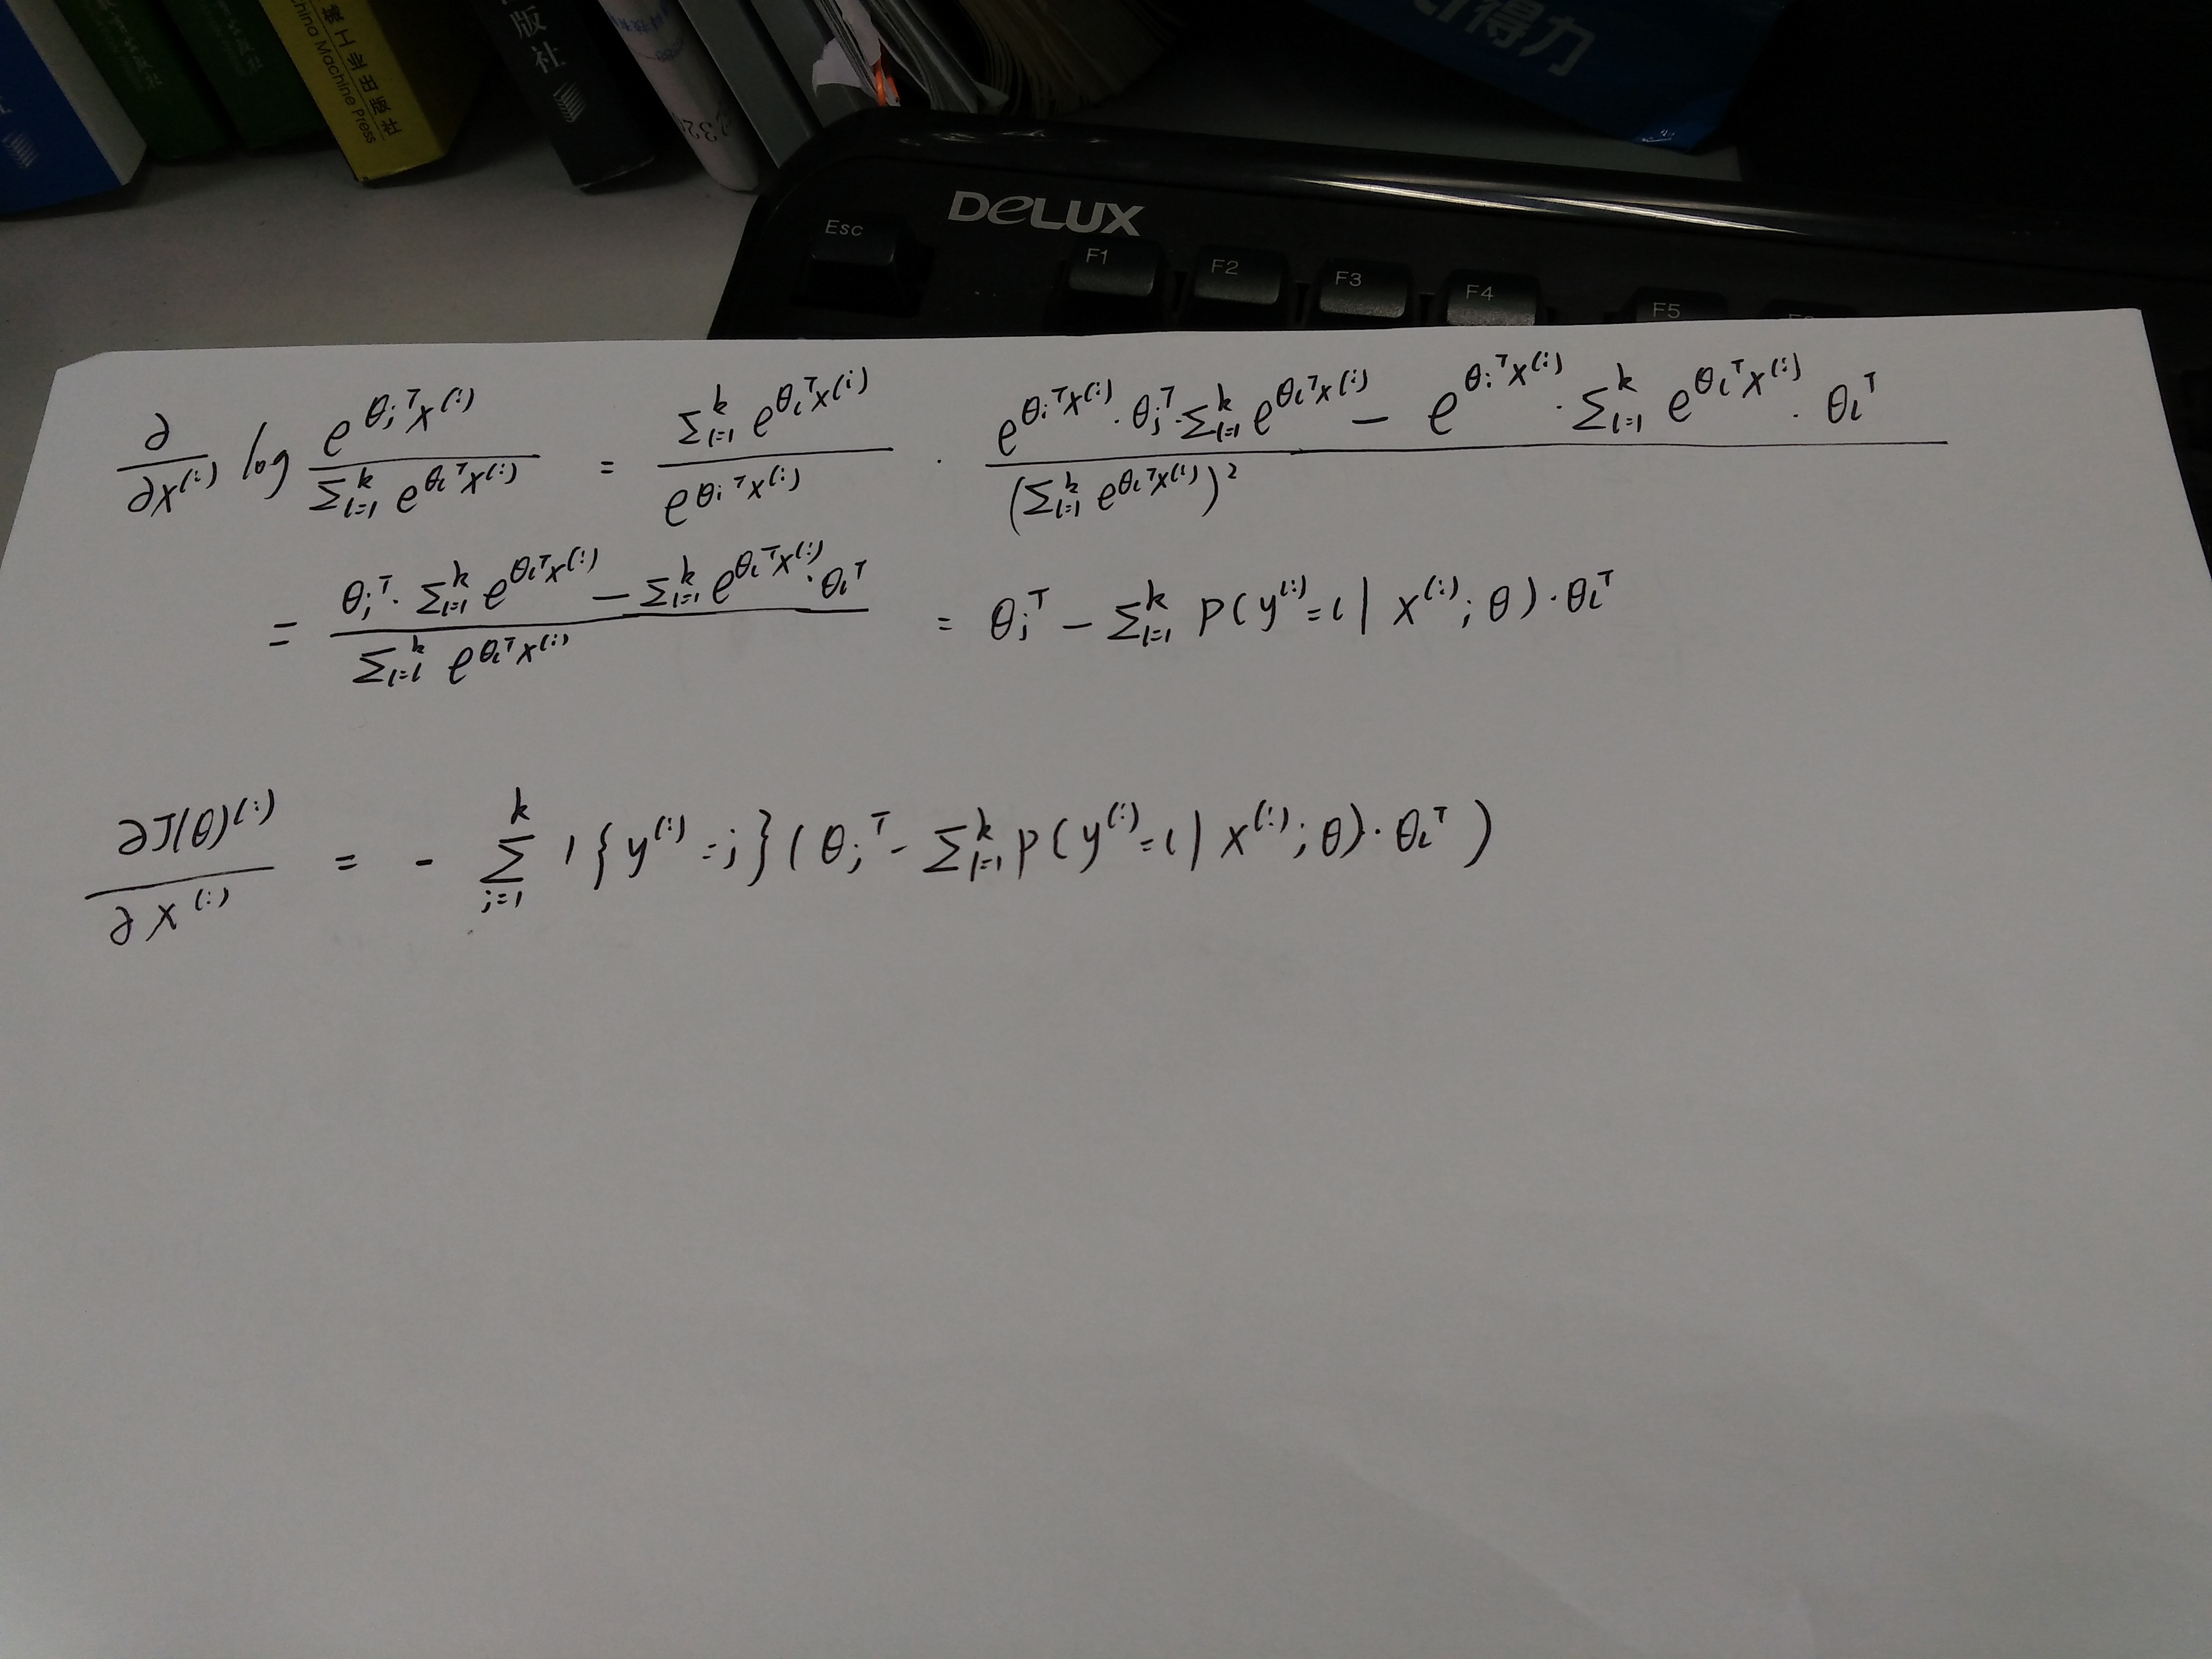 版社
机械工业出版社
China Machine Press
得力
DeLUX
Esc F1 F2 F3 F4 F5
∂/∂x⁽ⁱ⁾ log e^{θⱼᵀx⁽ⁱ⁾} / Σ_{l=1}^k e^{θₗᵀx⁽ⁱ⁾} = Σ_{l=1}^k e^{θₗᵀx⁽ⁱ⁾} / e^{θⱼᵀx⁽ⁱ⁾} · (e^{θⱼᵀx⁽ⁱ⁾} · θⱼᵀ · Σ_{l=1}^k e^{θₗᵀx⁽ⁱ⁾} − e^{θⱼᵀx⁽ⁱ⁾} · Σ_{l=1}^k e^{θₗᵀx⁽ⁱ⁾} · θₗᵀ) / (Σ_{l=1}^k e^{θₗᵀx⁽ⁱ⁾})²
= (θⱼᵀ · Σ_{l=1}^k e^{θₗᵀx⁽ⁱ⁾} − Σ_{l=1}^k e^{θₗᵀx⁽ⁱ⁾} · θₗᵀ) / Σ_{l=1}^k e^{θₗᵀx⁽ⁱ⁾} = θⱼᵀ − Σ_{l=1}^k p(y⁽ⁱ⁾=l | x⁽ⁱ⁾; θ) · θₗᵀ
∂J(θ)⁽ⁱ⁾ / ∂x⁽ⁱ⁾ = − Σ_{j=1}^k 1{y⁽ⁱ⁾=j}(θⱼᵀ − Σ_{l=1}^k p(y⁽ⁱ⁾=l | x⁽ⁱ⁾; θ) · θₗᵀ)